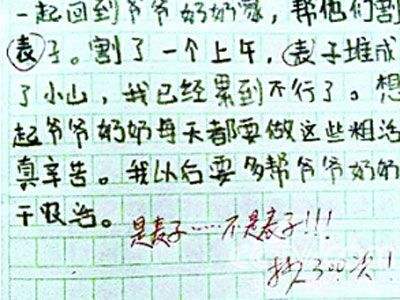 一起回到爷爷奶奶家，帮他们割
表子。割了一个上午，表子堆成
了小山，我已经累到不行了。想
起爷爷奶奶每天都要做这些粗活
真辛苦。我以后要多帮爷爷奶奶
干农活。
是麦子……不是表子!!!
抄300次!